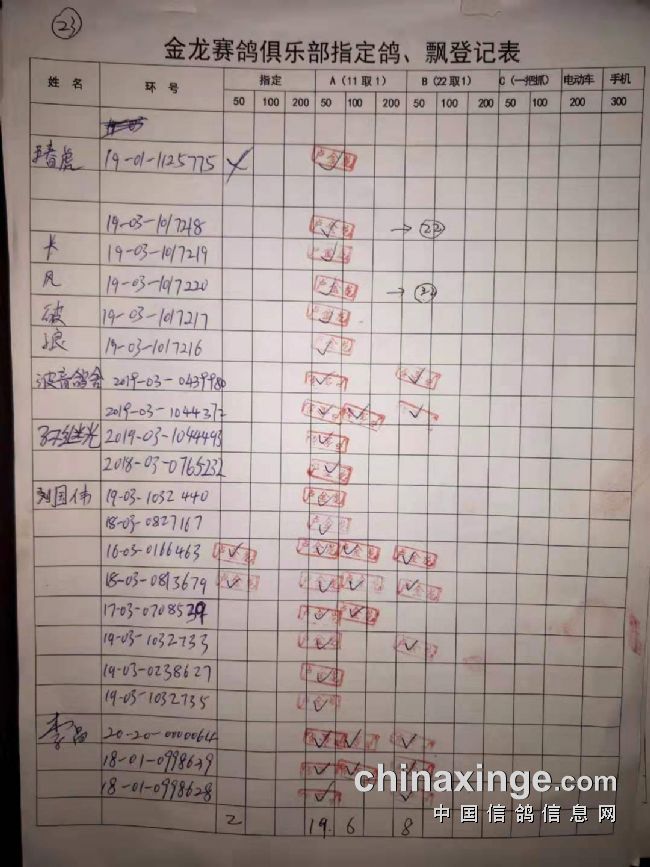 23
金龙赛鸽俱乐部指定鸽、飘登记表
姓 名 环 号 指定 A(11取1) B(22取1) C(一把抓) 电动车 手机
50 100 200 50 100 200 50 100 200 50 100 200 300
19-01-1125775
19-03-1017218 → 22
19-03-1017219
凡 19-03-1017220 →
彼 19-03-1017217
浪 19-03-1017216
波音鸽舍 2019-03-0439980
2019-03-1044372
2019-03-1044443
2018-03-0765232
刘国伟 19-03-1032440
18-03-0827167
16-03-0166463
18-03-0813679
17-03-
19-03-1032733
19-03-0238627
19-03-1032735
李 20-20-0000064
18-01-0998639
18-01-0998628
2 19 6 8
chinaxinge.com
中国信鸽信息网